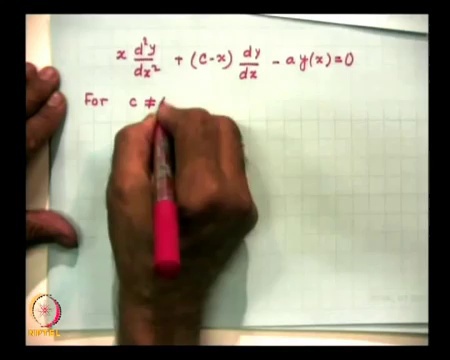 x d²y/dx² + (c-x) dy/dx - a y(x) = 0
For c ≠
NPTEL